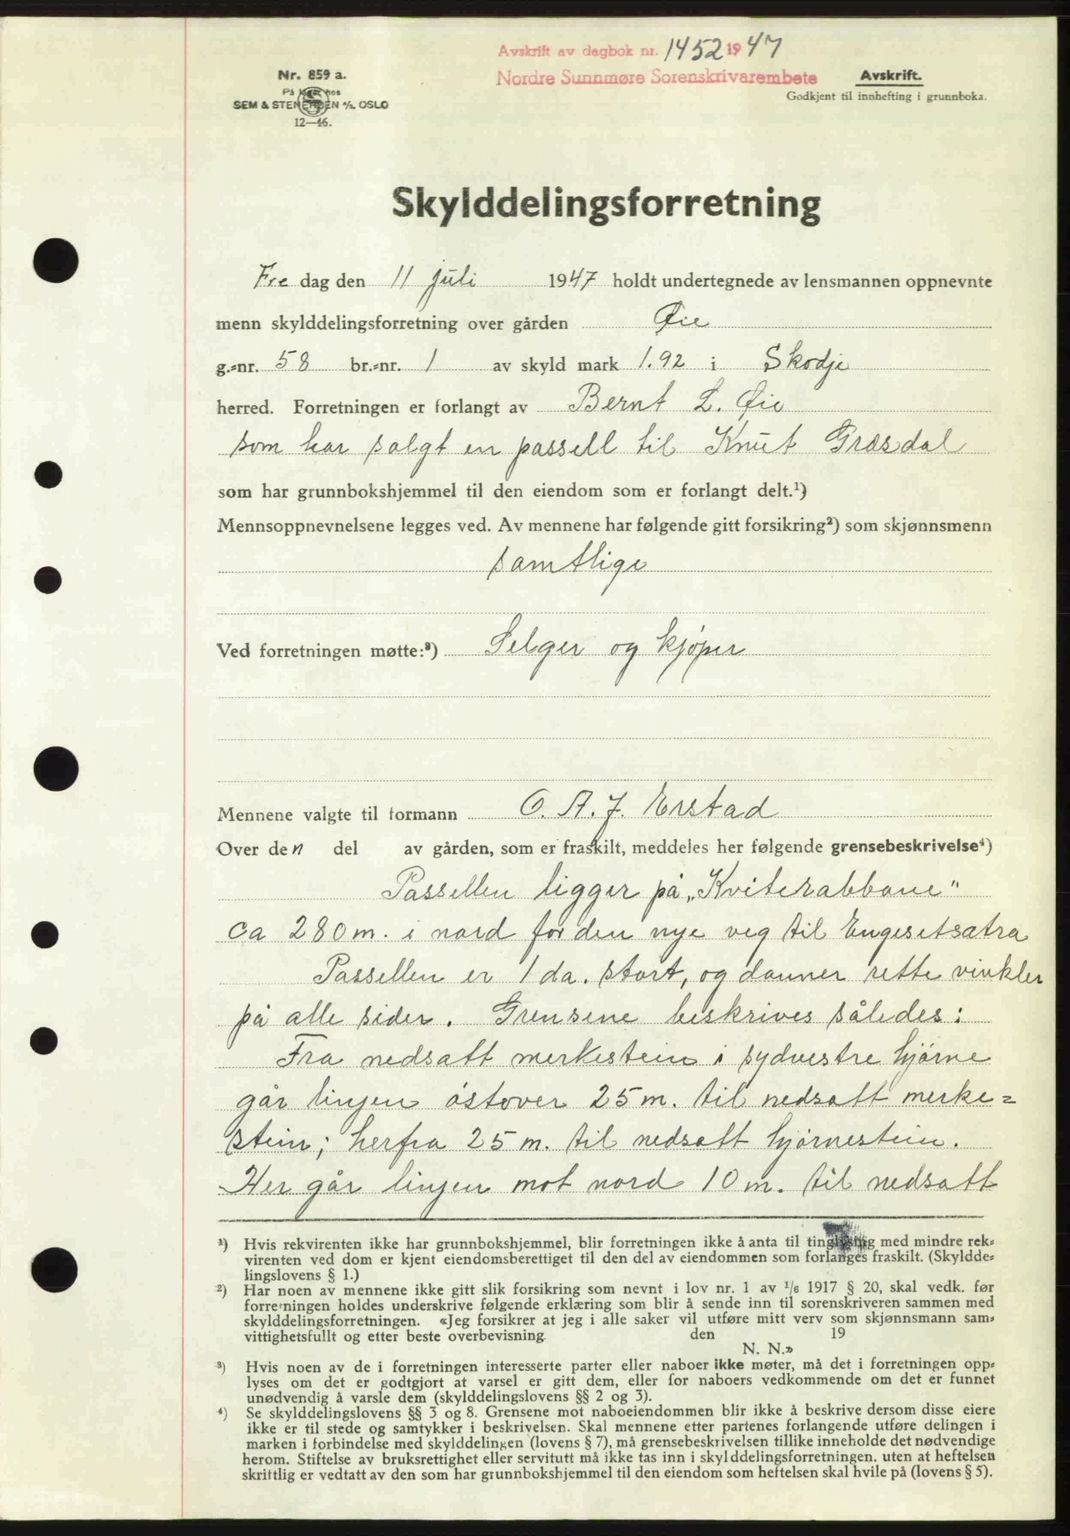 Avskrift av dagbok nr. 1452 1947
Nordre Sunnmøre Sorenskrivarembete
Avskrift.
Godkjent til innhefting i grunnboka.
Nr. 859 a.
På lager hos
SEM & STENERSEN A/S, OSLO
12—46.
Skylddelingsforretning
Fre dag den 11 juli 1947 holdt undertegnede av lensmannen oppnevnte
menn skylddelingsforretning over gården Øie
g.-nr. 58 br.-nr. 1 av skyld mark 1.92 i Skodje
herred. Forretningen er forlangt av Bernt L. Øie
som har solgt en passell til Knut Græsdal
som har grunnbokshjemmel til den eiendom som er forlangt delt.¹)
Mennsoppnevnelsene legges ved. Av mennene har følgende gitt forsikring²) som skjønnsmenn
samtlige
Ved forretningen møtte:³) Selger og kjøper
Mennene valgte til formann O. A. J. Erstad
Over den del av gården, som er fraskilt, meddeles her følgende grensebeskrivelse⁴)
Passellen ligger på „Kviterabbane"
ca 280 m. i nord for den nye veg til Engesetsætra
Passellen er 1 da. stort, og danner rette vinkler
på alle sider. Grensene beskrives således:
Fra nedsatt merkestein i sydvestre hjörne
går linjen östover 25 m. til nedsatt merke=
stein; herfra 25 m. til nedsatt hjörnestein.
Her går linjen mot nord 10 m. til nedsatt
¹) Hvis rekvirenten ikke har grunnbokshjemmel, blir forretningen ikke å anta til tinglysing med mindre rek-
virenten ved dom er kjent eiendomsberettiget til den del av eiendommen som forlanges fraskilt. (Skyldde-
lingslovens § 1.)
²) Har noen av mennene ikke gitt slik forsikring som nevnt i lov nr. 1 av 1/6 1917 § 20, skal vedk. før
forretningen holdes underskrive følgende erklæring som blir å sende inn til sorenskriveren sammen med
skylddelingsforretningen. «Jeg forsikrer at jeg i alle saker vil utføre mitt verv som skjønnsmann sam-
vittighetsfullt og etter beste overbevisning. den 19
N. N.»
³) Hvis noen av de i forretningen interesserte parter eller naboer ikke møter, må det i forretningen opp-
lyses om det er godtgjort at varsel er gitt dem, eller for naboers vedkommende om det er funnet
unødvendig å varsle dem (skylddelingslovens §§ 2 og 3).
⁴) Se skylddelingslovens §§ 3 og 8. Grensene mot naboeiendommen blir ikke å beskrive dersom disse eiere
ikke er til stede og samtykker i beskrivelsen. Skal mennene etter partenes forlangende utføre delingen i
marken i forbindelse med skylddelingen (lovens § 7), må grensebeskrivelsen tillike inneholde det nødvendige
herom. Stiftelse av bruksrettighet eller servitutt må ikke tas inn i skylddelingsforretningen, uten at heftelsen
skriftlig er vedtatt av den som har grunnbokshjemmel til den eiendom som heftelsen skal hvile på (lovens § 5).